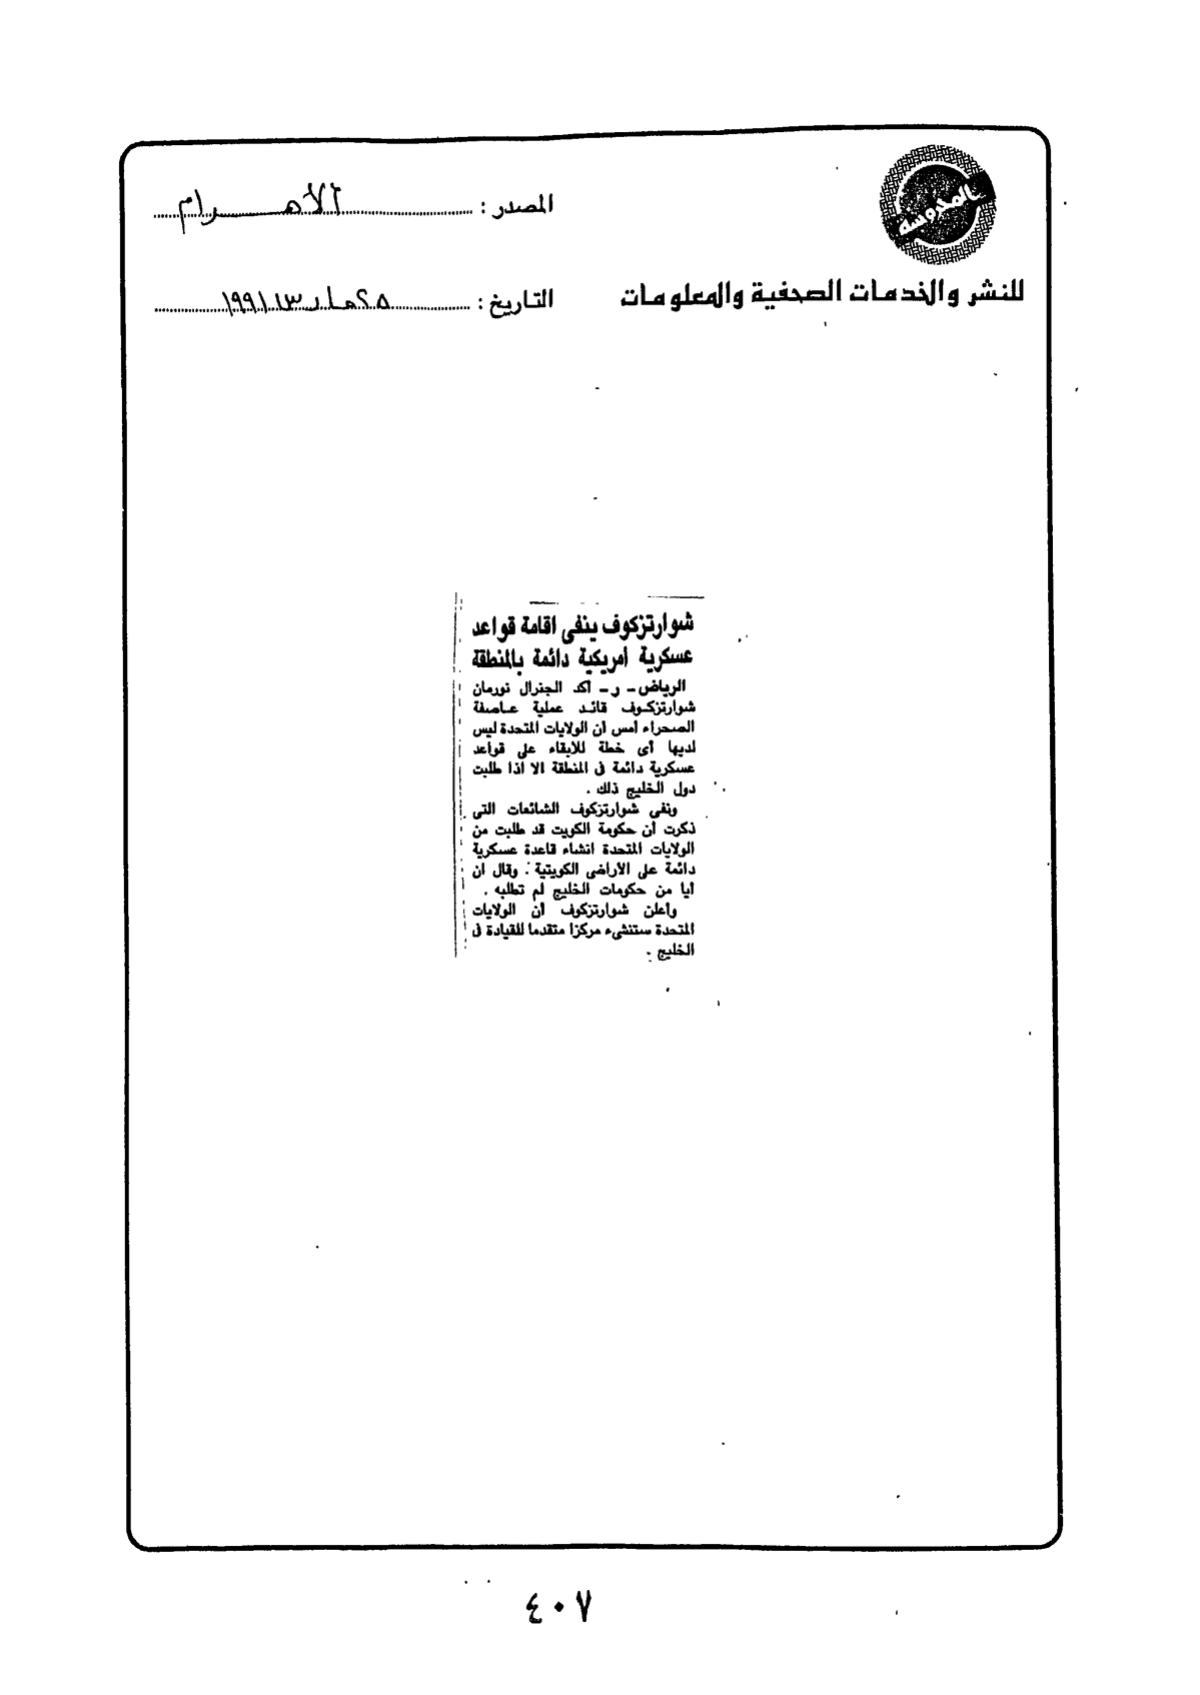 المدوسه
للنشر والخدمات الصحفية والمعلومات
المصدر : الأهرام
التاريخ : ٢٥ مارس ١٩٩١
شوارتزكوف ينفى اقامة قواعد
عسكرية أمريكية دائمة بالمنطقة
الرياض - ر - أكد الجنرال نورمان
شوارتزكوف قائد عملية عاصفة
الصحراء أمس أن الولايات المتحدة ليس
لديها أى خطة للابقاء على قواعد
عسكرية دائمة فى المنطقة الا اذا طلبت
دول الخليج ذلك .
ونفى شوارتزكوف الشائعات التى
ذكرت أن حكومة الكويت قد طلبت من
الولايات المتحدة انشاء قاعدة عسكرية
دائمة على الأراضى الكويتية . وقال ان
أيا من حكومات الخليج لم تطلبه .
وأعلن شوارتزكوف أن الولايات
المتحدة ستنشىء مركزا متقدما للقيادة فى
الخليج .
٤٠٧